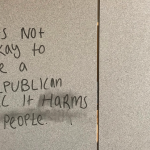 s Not
kay to
e a
epublican
c it Harms
People